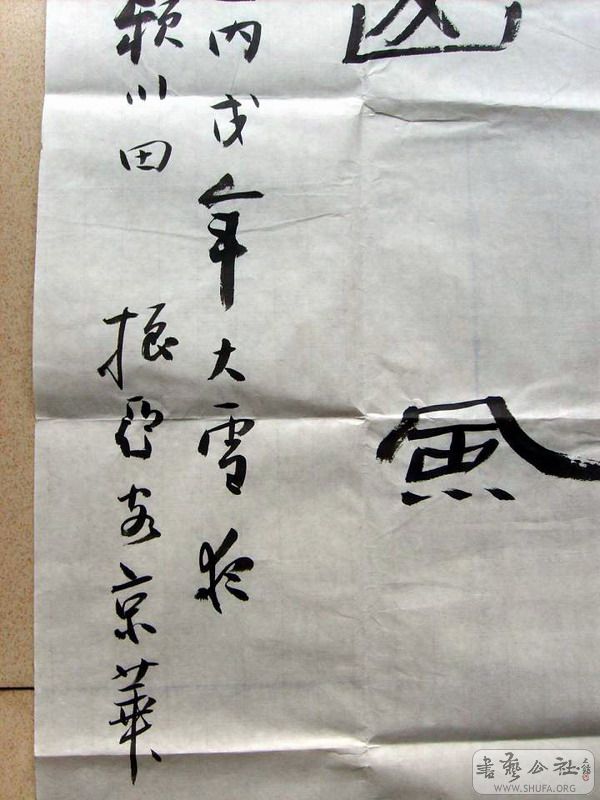 丙戌年大雪於
潁川田振亞客京華
書藝公社
WWW.SHUFA.ORG